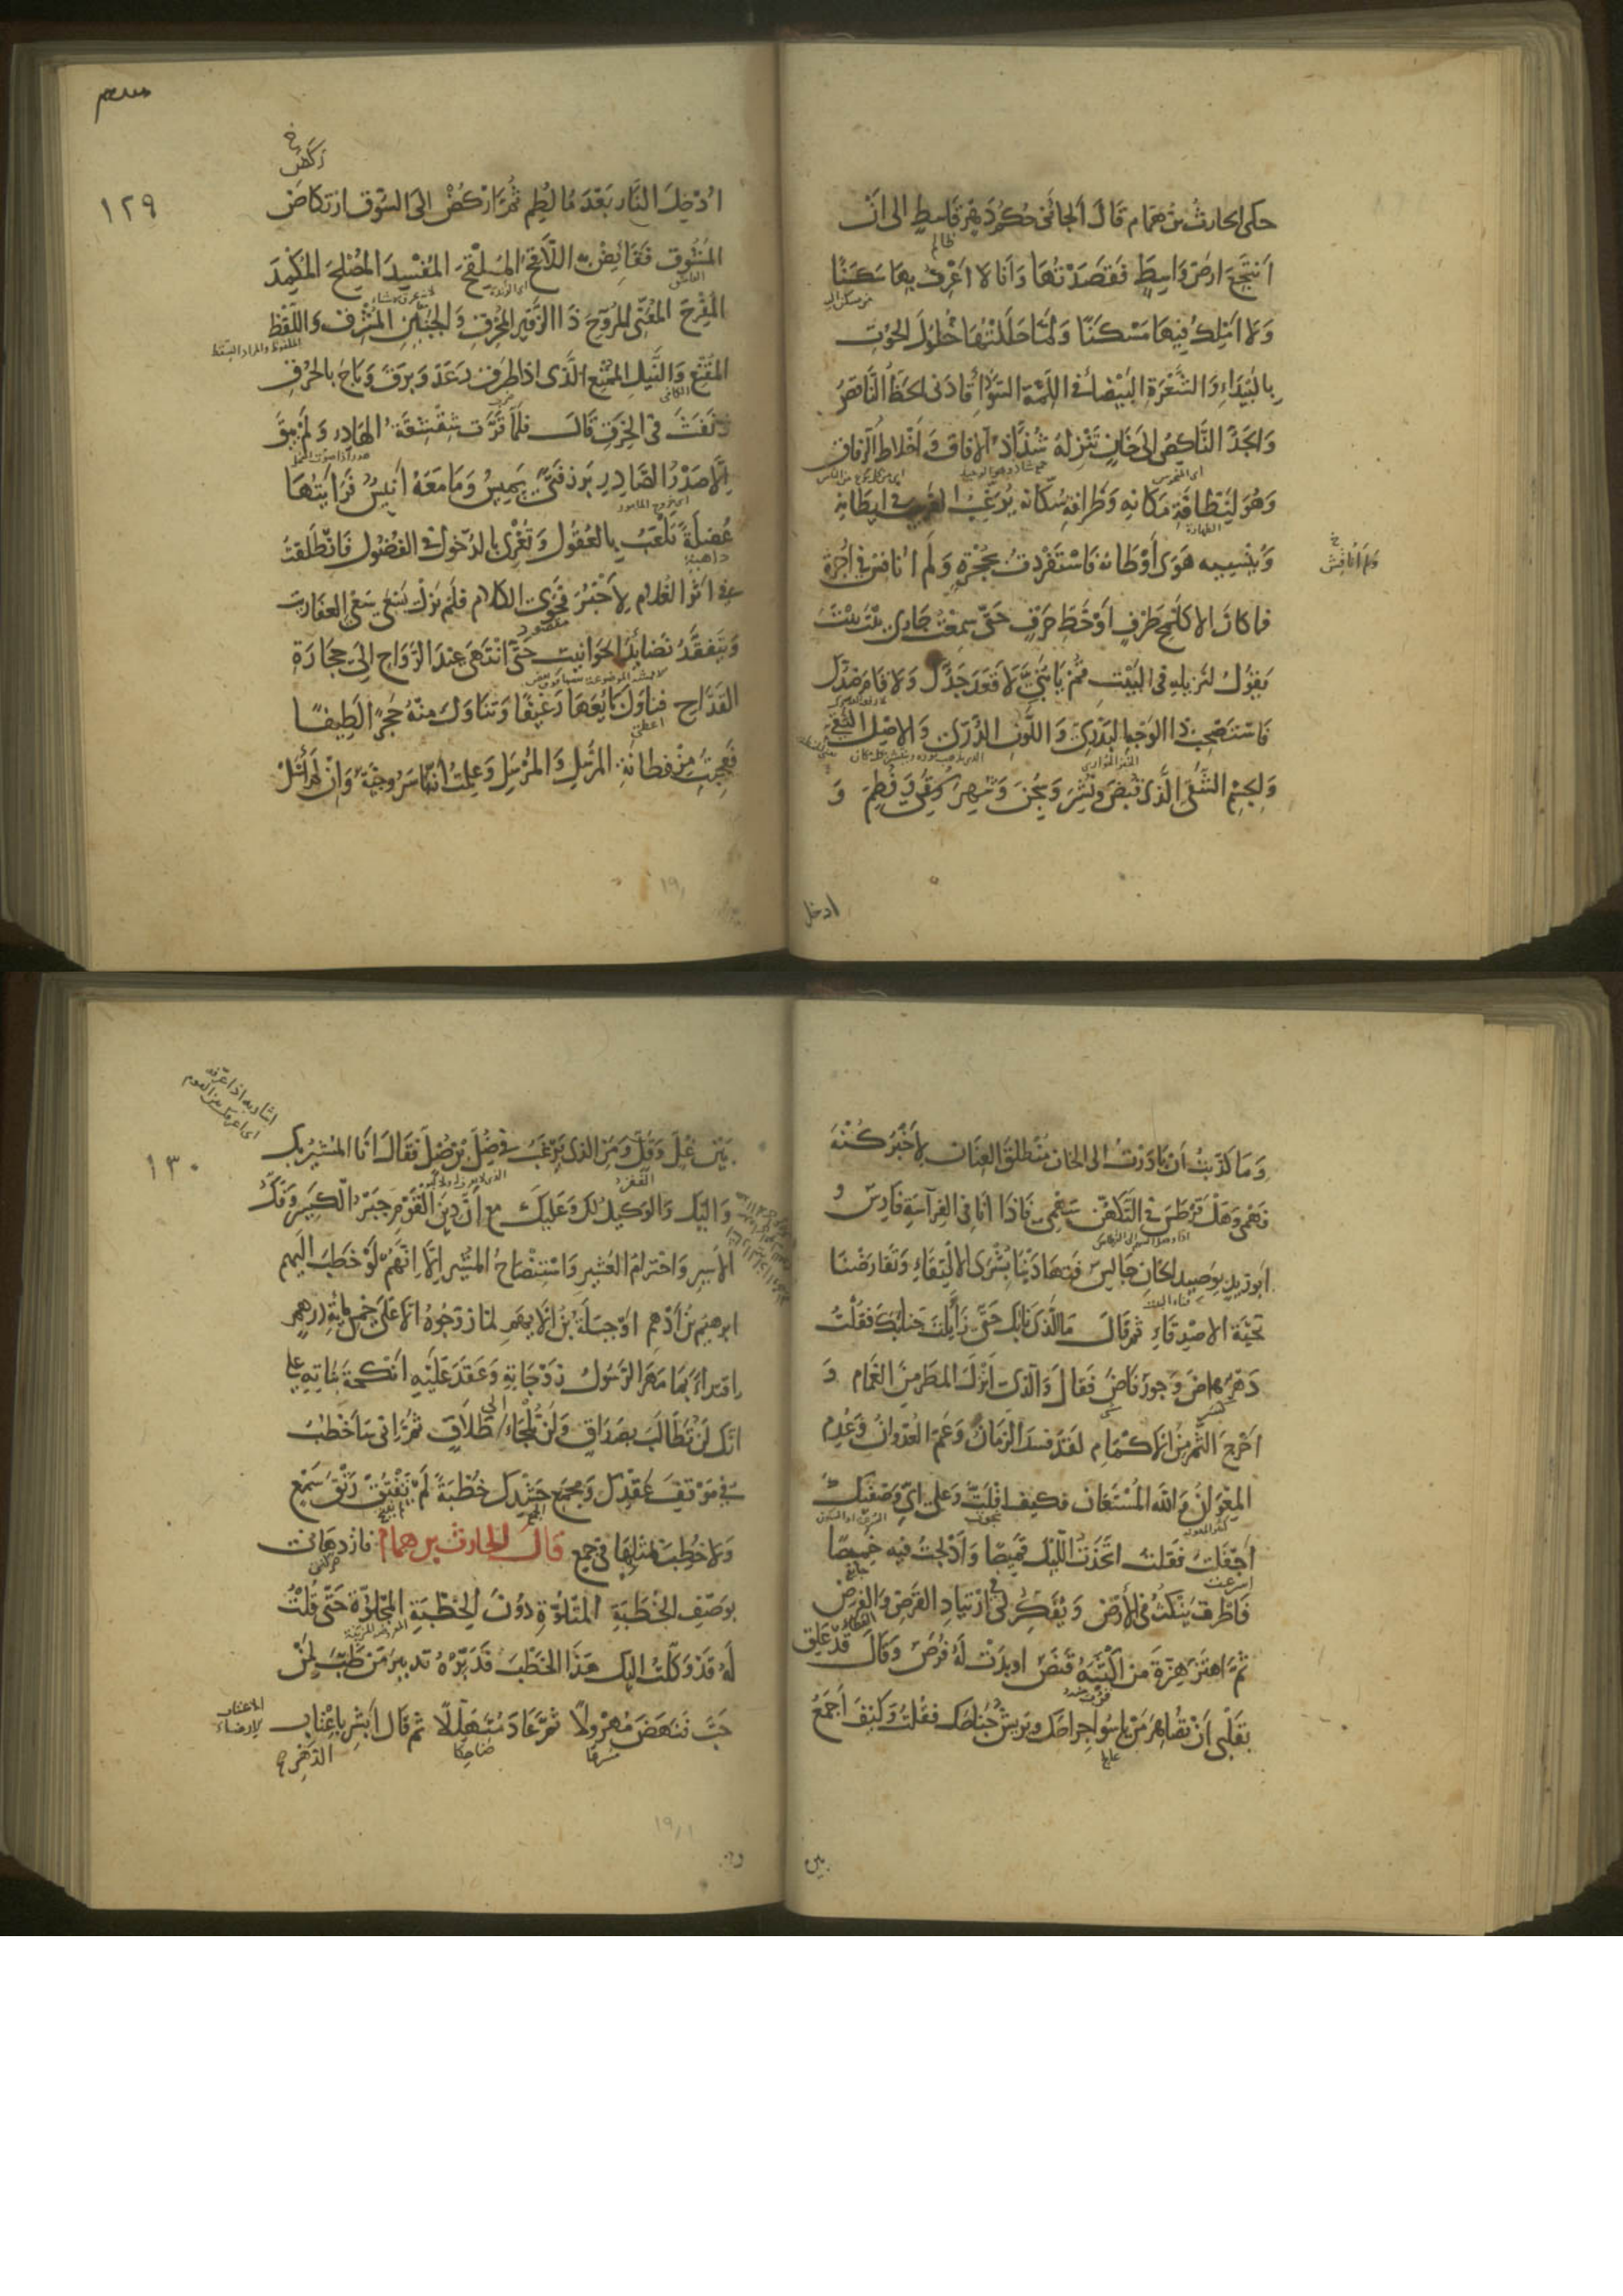 حكى الحارث بن همام قال ألجأني حكم دهر قاسط الى ان
ظالم
أنتجع ارض واسط فقصدتها وانا لا اعرف بها سكنا
ولا املك فيها مسكنا ولما حللتها حلول الحوت
بالبيداء والشعرة البيضاء في اللمة السوداء قادني الحظ الناقص
والجد الناكص الى خان تنزله شذاذ الافاق واخلاط الرفاق
وهو لنظافة مكانه وظرافة سكانه يرغب الغريب في ايطانه
الطهارة
وينسيه هوى أوطانه فاستفردت بحجرة ولم أنافس في اجرة
ولم أناقش
خ
فما كان الا كلمح طرف أو خط حرف حتى سمعت جاري بيت بيت
يقول لنزيله في البيت قم يا بني لا قعد جدك ولا قام ضدك
فاستصحب ذا الوجه البدري واللون الدري والاصل النقي
والجسم الشقي الذي قبض ونشر وسجن وشهر وسقي وفطم و
ادخل
١٢٩
ركض
خ
ادخل النار بعد ما لطم ثم اركض الى السوق ارتكاض
المشوق فقايض به اللاقح الملقح المفسد المصلح المكمد
المفرح المعنى المروح ذا الزفير المحرق والجنين المشرق واللفظ
المقنع والنيل الممتع الذي اذا طرق رعد وبرق وباح بالحرق
ونفث في الخرق قال فلما قرت شقشقة الهادر ولم يبق
الا صدر الصادر برز فتى يميس وما معه أنيس فرأيتها
عضلة تلعب بالعقول وتغري بالدخول في الفضول فانطلقت
داهية
في اثر الغلام لأخبر فحوى الكلام فلم يزل يسعى سعي العفاريت
مقصود
ويتفقد نضائد الحوانيت حتى انتهى عند الرواح الى حجارة
القداح فناول بايعها رغيفا وتناول منه حجرا لطيفا
اعطى
فعجبت من فطانة المرسل والمرسل وعلمت انها سروجية وان لم أسئل
١٩١
وما كذبت أن بادرت الى الخان منطلق العنان لأخبر كنه
فهمي وهل قرطس في التكهن سهمي فاذا انا في الفراسة فارس و
ابو زيد بوصيد الخان جالس فتهادينا بشرى الالتقاء وتقارضنا
تحية الاصدقاء ثم قال ما الذي نابك حتى زايلت جنابك فقلت
دهر هاض وجور فاض فقال والذي أنزل المطر من الغمام و
اخرج الثمر من الاكمام لقد فسد الزمان وعم العدوان وعدم
المعوان والله المستعان فكيف افلت وعلى اي وصفيك
أجفلت فقلت اتخذت الليل قميصا وأدلجت فيه خميصا
اسرعت
جايع
فاطرق ينكت في الارض ويفكر في ارتياد القرض والفرض
ثم اهتز هزة من اكثبه قنص او بدت له فرص وقال قد علق
بقلبي ان تصاهر من ياسو جراحك ويريش جناحك فقلت وكيف أجمع
بين
١٣٠
بين غل وقل ومن الذي يرغب في ضل بن ضل فقال انا المشير بك
الفقر
واليك والوكيل لك وعليك مع أن دين القوم جبر الكسير وفك
الاسير واحترام العشير واستنصاح المشير الا انهم لو خطب اليهم
ابرهيم بن أدهم او جبلة بن الايهم لما زوجوه الا على خمس مائة درهم
اقتداء بما مهر الرسول زوجاته وعقد عليه أنكحة بناته على
انك لن تطالب بصداق ولن تلجاء الى طلاق ثم اني ساخطب
في موقف عقدك ومجمع حشدك خطبة لم تفتق رتق سمع
ولا خطب بمثلها في جمع قال الحارث بن همام فازدهاني
بوصف الخطبة المتلوة دون الخطبة المجلوة حتى قلت
له قد وكلت اليك هذا الخطب فدبره تدبير من طب لمن
حب فنهض مهرولا ثم عاد متهللا ثم قال أبشر باعتاب
ضاحكا
الدهر
الاعتاب الارضاء
١٩١